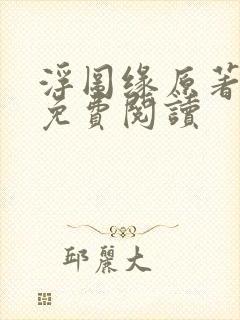 浮图缘原著
免費閱讀
邱麗大